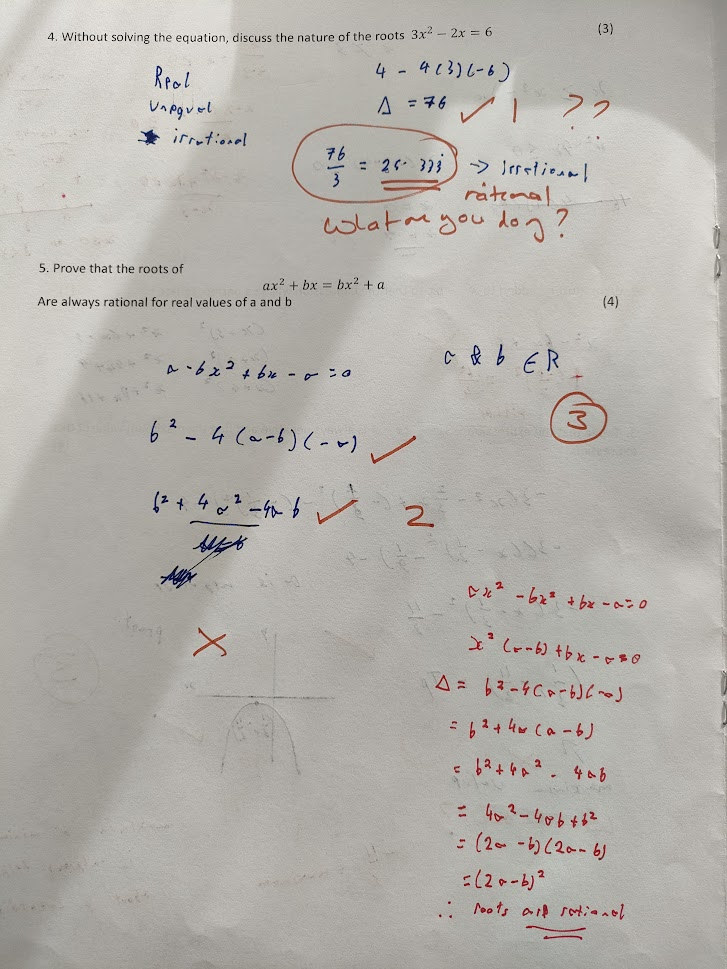 4. Without solving the equation, discuss the nature of the roots 3x² − 2x = 6 (3)
Real
Unequal
irrational
4 - 4(3)(-6)
Δ = 76 ✓ 1 ??
76/3 = 25.333 → irrational
rational
What are you doing?
5. Prove that the roots of
ax² + bx = bx² + a
Are always rational for real values of a and b (4)
a & b ∈ R
a - bx² + bx - a = 0
3
b² - 4(a-b)(-a) ✓
b² + 4a² - 4ab ✓ 2
✗
ax² - bx² + bx - a = 0
x²(a-b) + bx - a = 0
Δ = b² - 4(a-b)(-a)
= b² + 4a(a-b)
= b² + 4a² - 4ab
= 4a² - 4ab + b²
= (2a - b)(2a - b)
= (2a - b)²
∴ roots are rational